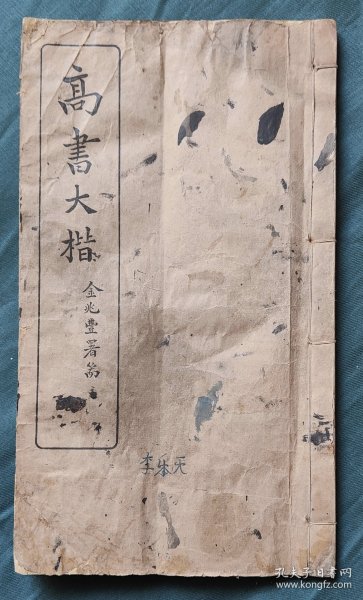 高書大楷
金兆豐署耑
李乐天
孔夫子旧书网
kongfz.com